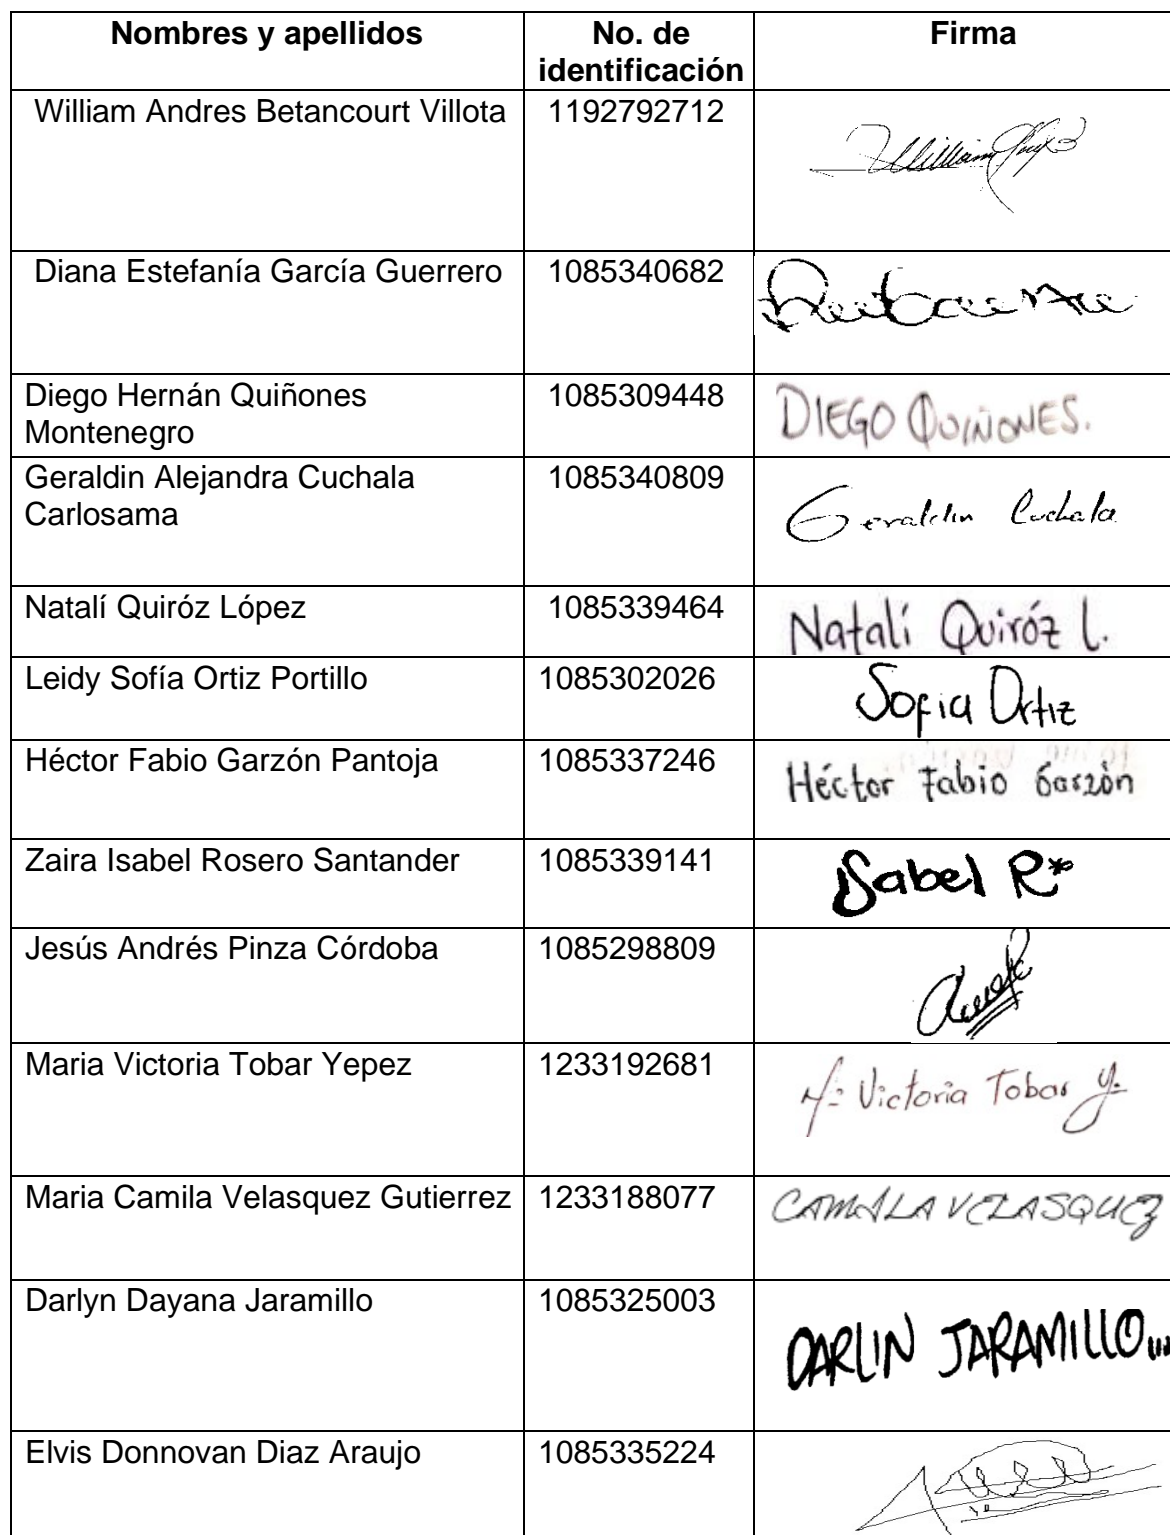 Nombres y apellidos
No. de
identificación
Firma
William Andres Betancourt Villota
1192792712
William
Diana Estefanía García Guerrero
1085340682
Diego Hernán Quiñones
Montenegro
1085309448
DIEGO QUIÑONES.
Geraldin Alejandra Cuchala
Carlosama
1085340809
Geraldin Cuchala
Natalí Quiróz López
1085339464
Natalí Quiróz L.
Leidy Sofía Ortiz Portillo
1085302026
Sofia Ortiz
Héctor Fabio Garzón Pantoja
1085337246
Héctor Fabio Garzón
Zaira Isabel Rosero Santander
1085339141
Isabel R*
Jesús Andrés Pinza Córdoba
1085298809
Maria Victoria Tobar Yepez
1233192681
Mª Victoria Tobar Y.
Maria Camila Velasquez Gutierrez
1233188077
CAMILA VELASQUEZ
Darlyn Dayana Jaramillo
1085325003
DARLIN JARAMILLO...
Elvis Donnovan Diaz Araujo
1085335224